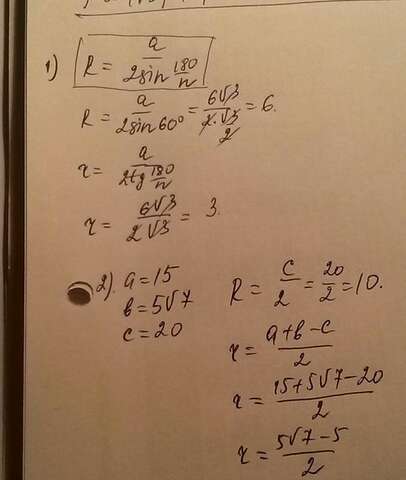 1) R = a / (2 sin 180/n)
R = a / (2 sin 60°) = 6√3 / (2·√3/2) = 6.
r = a / (2 tg 180/n)
r = 6√3 / (2√3) = 3.
2). a = 15
b = 5√7
c = 20
R = c/2 = 20/2 = 10.
r = (a + b − c) / 2
r = (15 + 5√7 − 20) / 2
r = (5√7 − 5) / 2